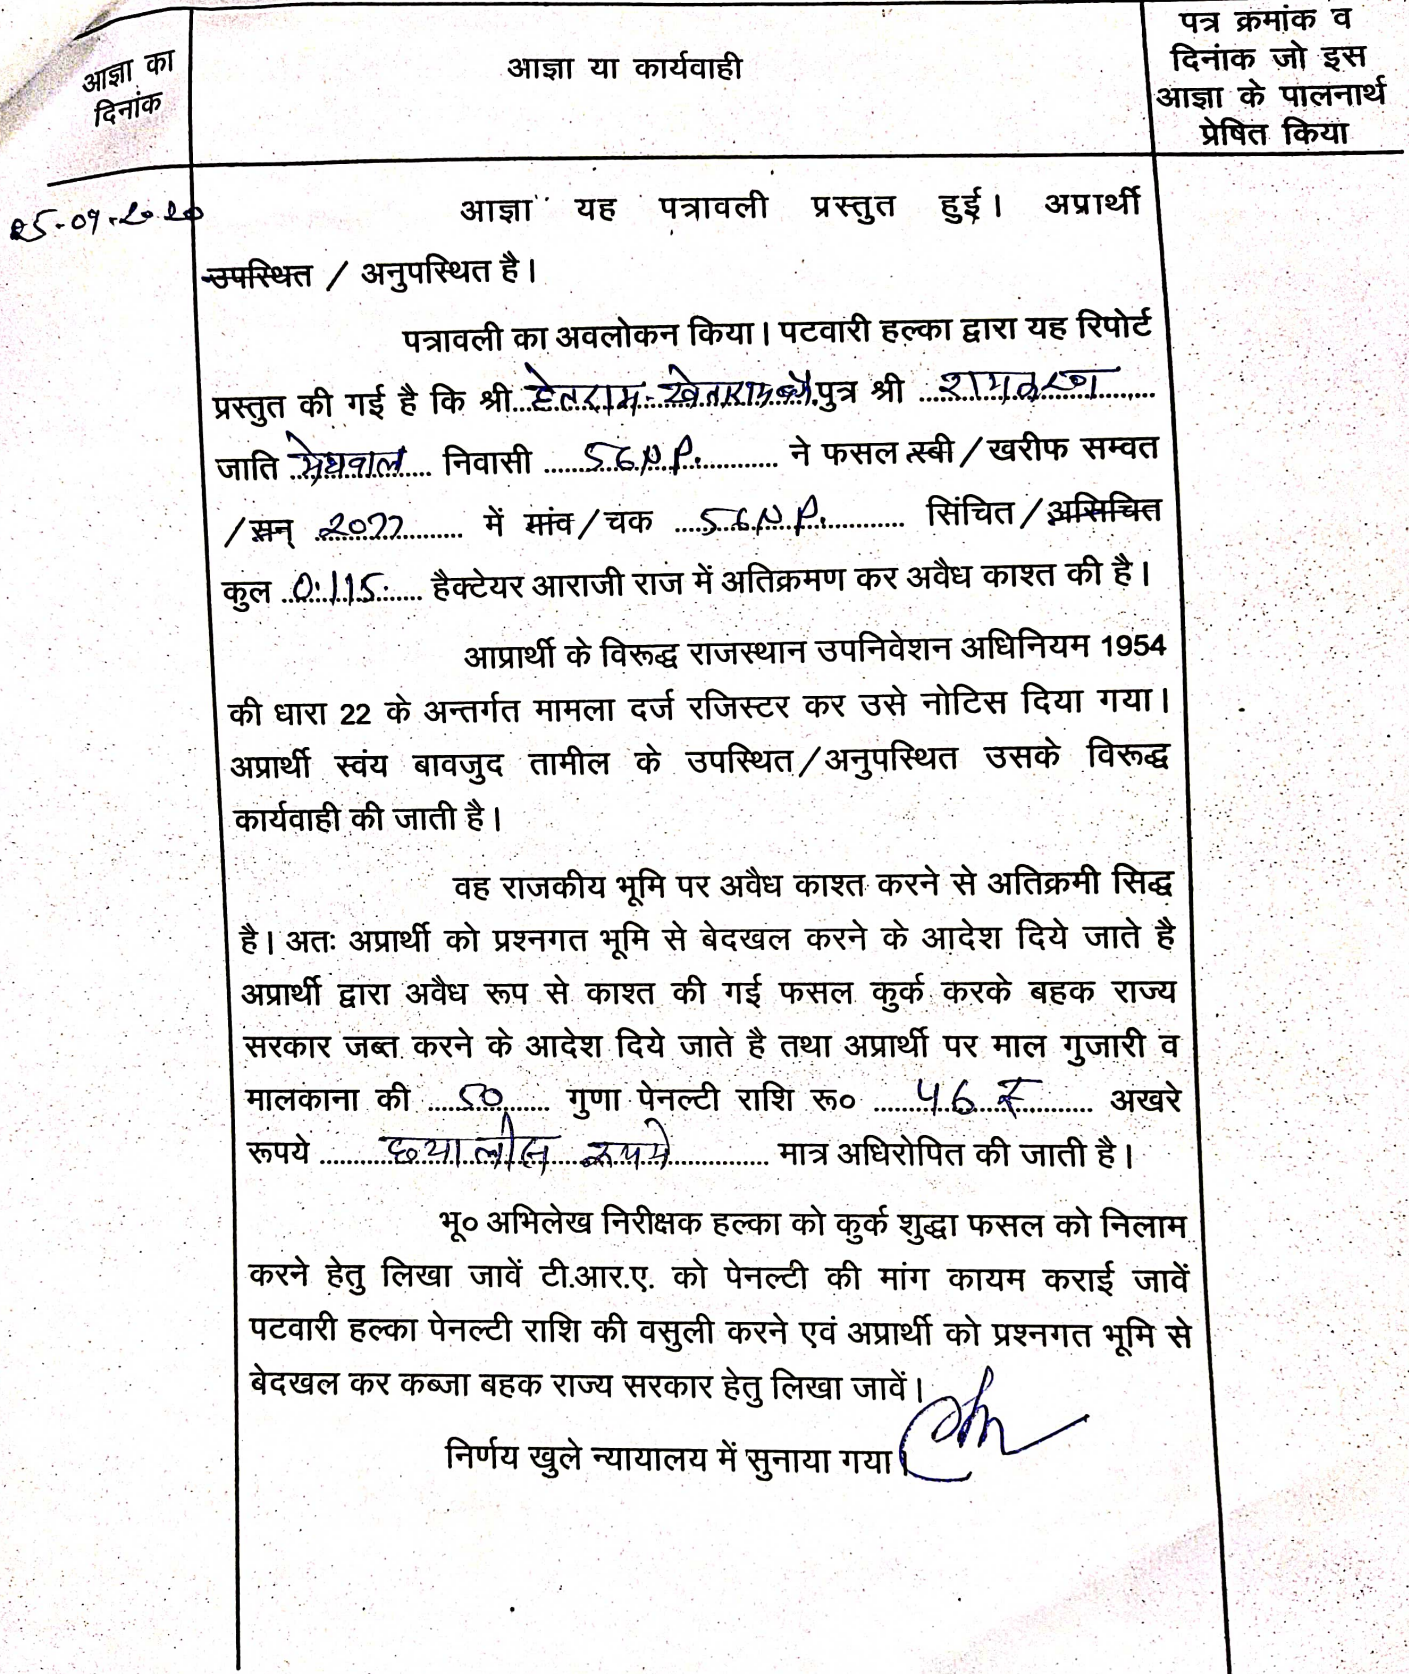 आज्ञा का
दिनांक
आज्ञा या कार्यवाही
पत्र क्रमांक व
दिनांक जो इस
आज्ञा के पालनार्थ
प्रेषित किया
25-09-2020
आज्ञा यह पत्रावली प्रस्तुत हुई। अप्रार्थी
उपस्थित / अनुपस्थित है।
पत्रावली का अवलोकन किया। पटवारी हल्का द्वारा यह रिपोर्ट
प्रस्तुत की गई है कि श्री हेतराम-खेताराम पुत्र श्री
जाति मेघवाल निवासी 5GNP. ने फसल रबी / खरीफ सम्वत
/ सन् में गांव / चक 5GNP. सिंचित / असिचित
कुल 0.115 हैक्टेयर आराजी राज में अतिक्रमण कर अवैध काश्त की है।
आप्रार्थी के विरूद्ध राजस्थान उपनिवेशन अधिनियम 1954
की धारा 22 के अन्तर्गत मामला दर्ज रजिस्टर कर उसे नोटिस दिया गया।
अप्रार्थी स्वंय बावजुद तामील के उपस्थित / अनुपस्थित उसके विरूद्ध
कार्यवाही की जाती है।
वह राजकीय भूमि पर अवैध काश्त करने से अतिक्रमी सिद्ध
है। अतः अप्रार्थी को प्रश्नगत भूमि से बेदखल करने के आदेश दिये जाते है
अप्रार्थी द्वारा अवैध रूप से काश्त की गई फसल कुर्क करके बहक राज्य
सरकार जब्त करने के आदेश दिये जाते है तथा अप्रार्थी पर माल गुजारी व
मालकाना की 50 गुणा पेनल्टी राशि रू० 46 रु अखरे
रूपये छयालीस रूपये मात्र अधिरोपित की जाती है।
भू० अभिलेख निरीक्षक हल्का को कुर्क शुद्धा फसल को निलाम
करने हेतु लिखा जावें टी.आर.ए. को पेनल्टी की मांग कायम कराई जावें
पटवारी हल्का पेनल्टी राशि की वसुली करने एवं अप्रार्थी को प्रश्नगत भूमि से
बेदखल कर कब्जा बहक राज्य सरकार हेतु लिखा जावें।
निर्णय खुले न्यायालय में सुनाया गया।